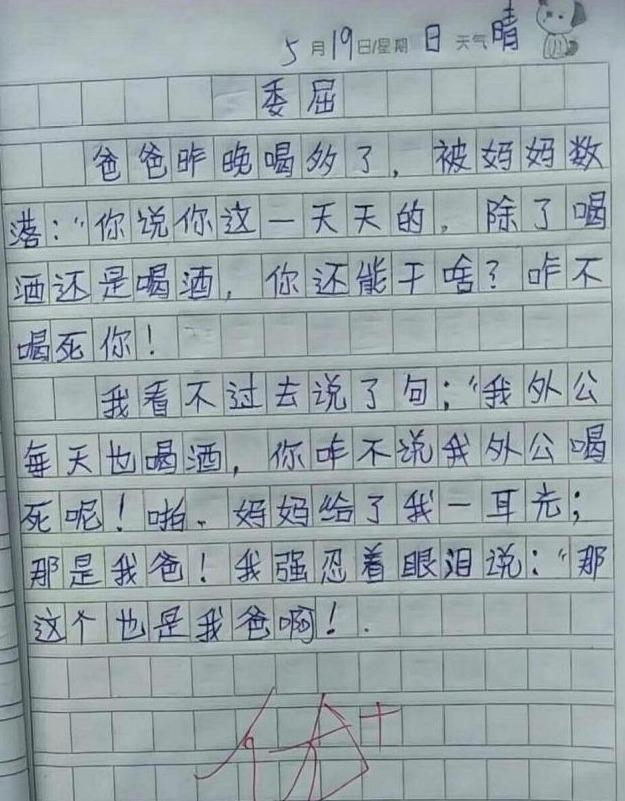 5月19日/星期日 天气晴
委屈
爸爸昨晚喝多了，被妈妈数
落："你说你这一天天的，除了喝
酒还是喝酒，你还能干啥？咋不
喝死你！
我看不过去说了句；"我外公
每天也喝酒，你咋不说我外公喝
死呢！啪．妈妈给了我一耳光；
那是我爸！我强忍着眼泪说："那
这个也是我爸啊！.